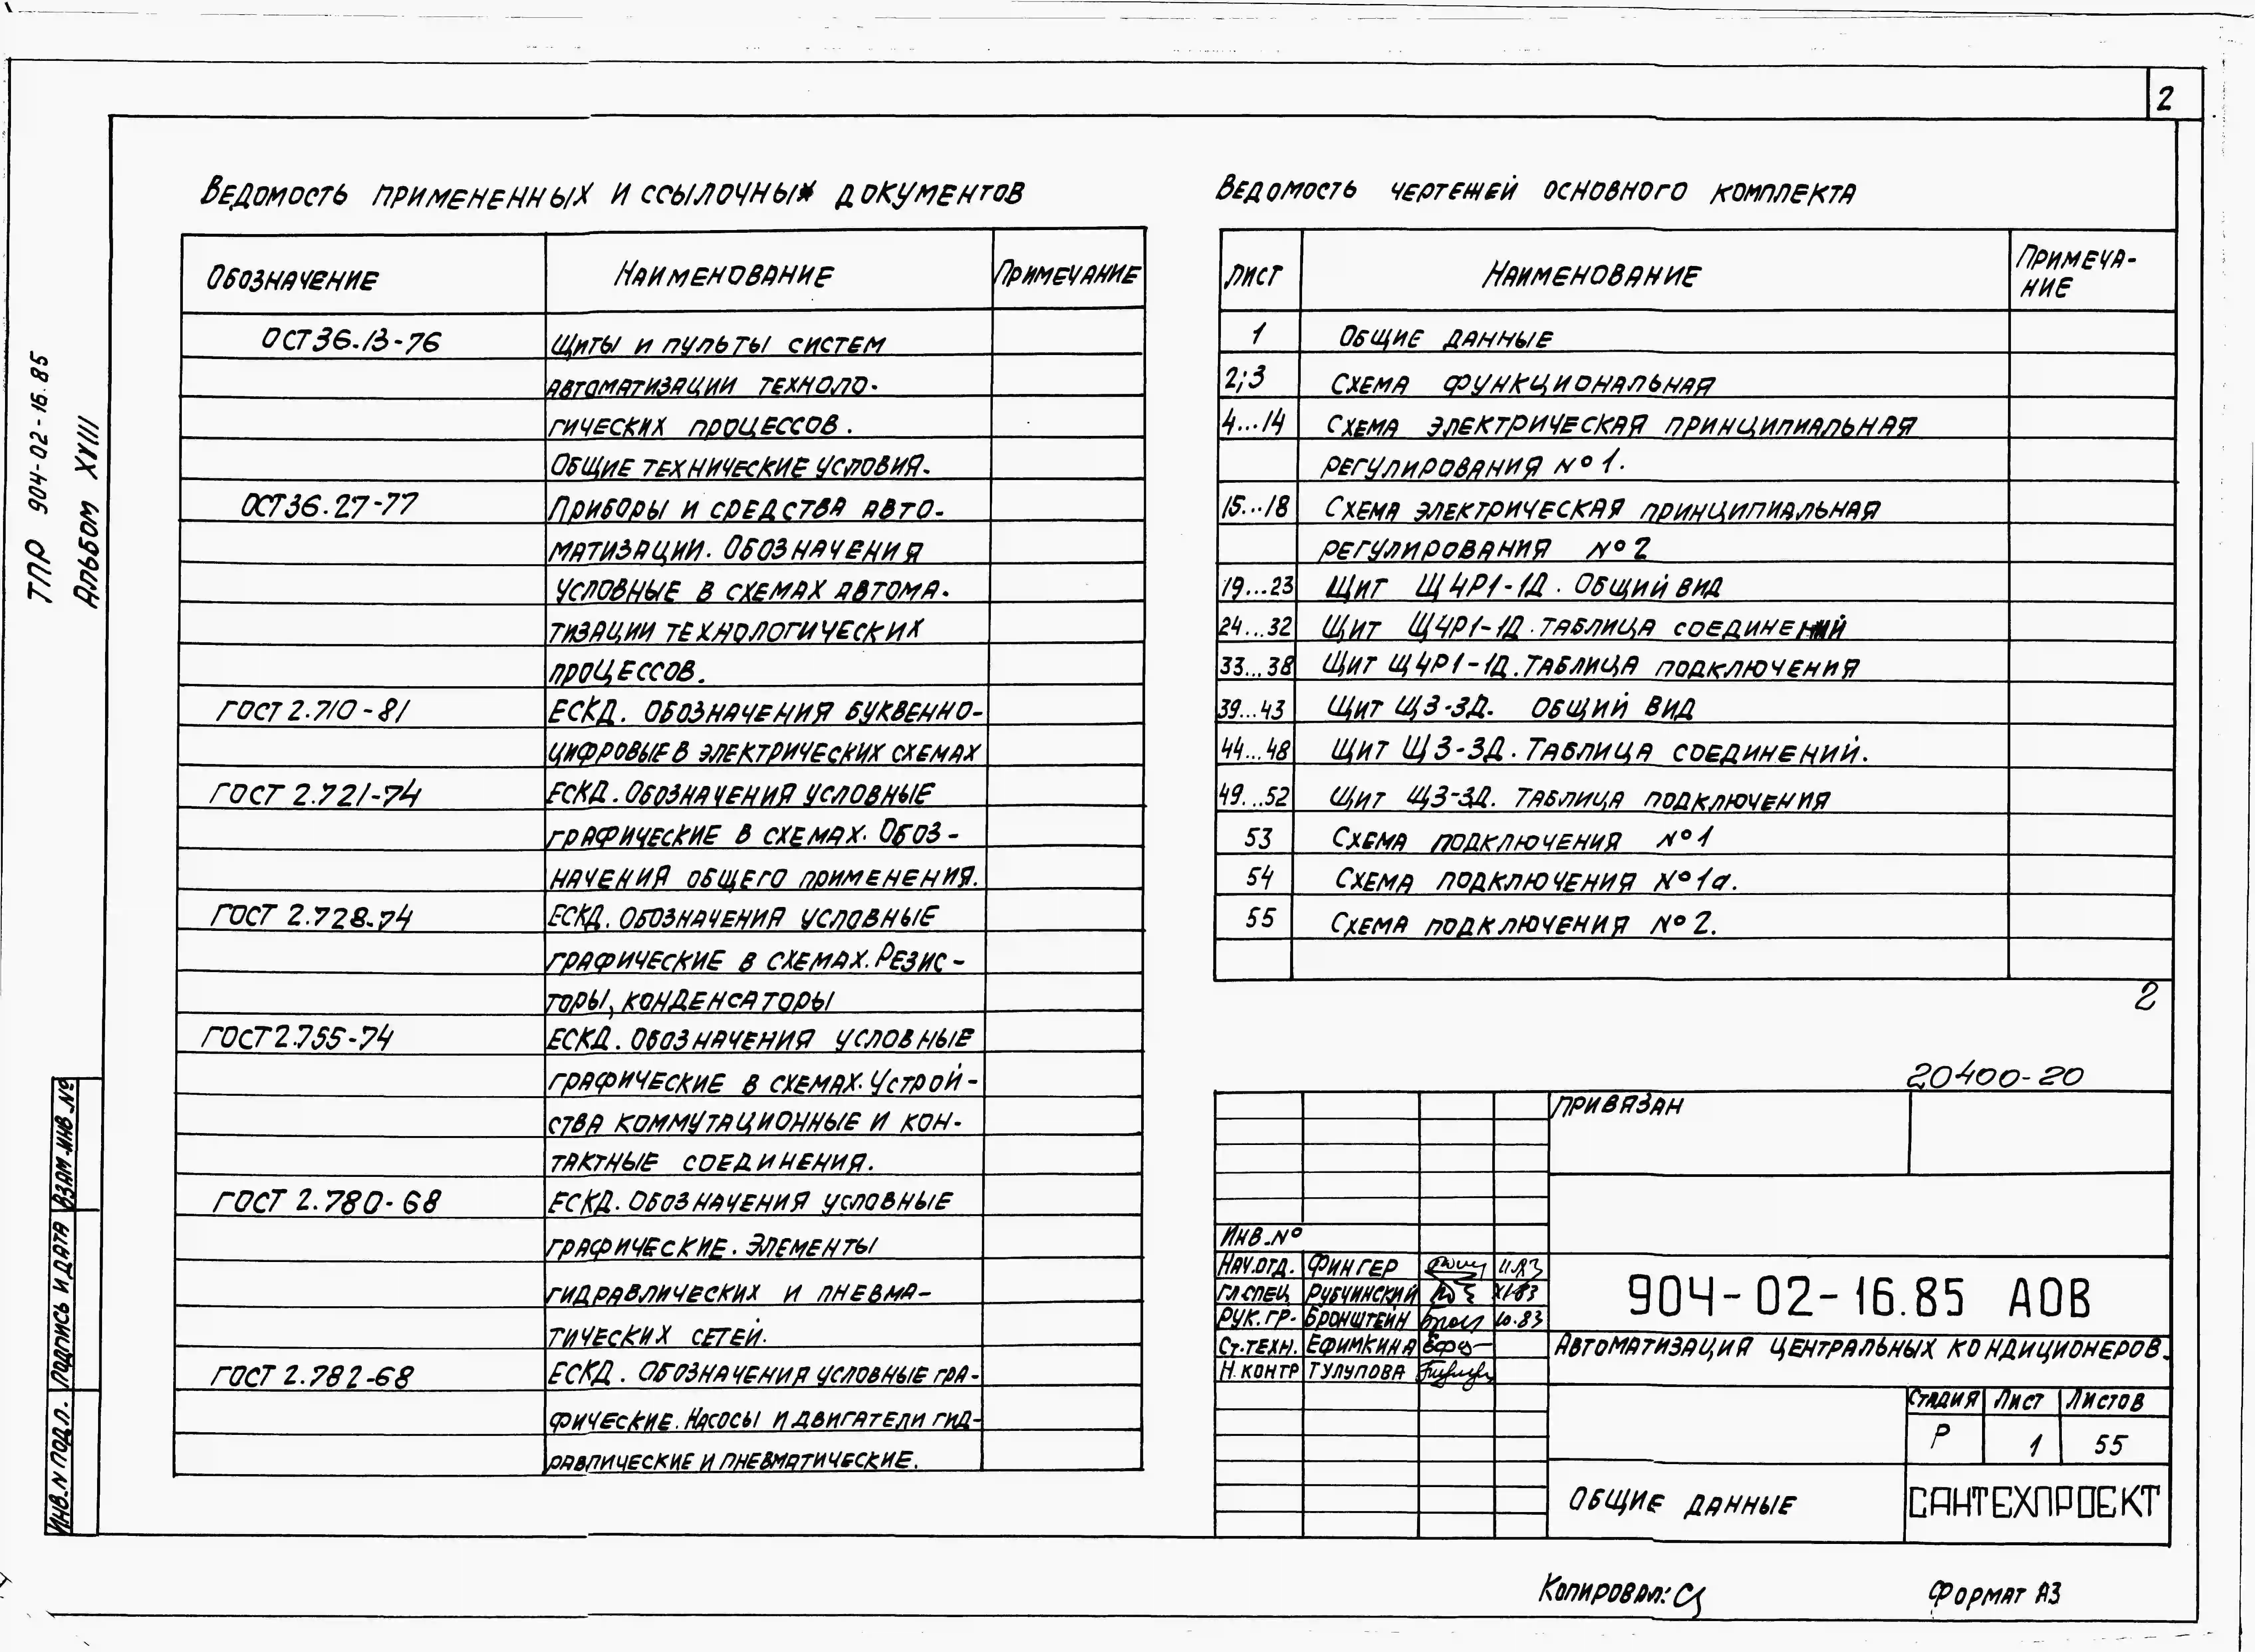 2
ТПР 904-02-16.85
Альбом XVIII
Ведомость примененных и ссылочных документов
Обозначение Наименование Примечание
ОСТ36.13-76 Щиты и пульты систем
автоматизации техноло-
гических процессов.
Общие технические условия.
ОСТ36.27-77 Приборы и средства авто-
матизации. Обозначения
условные в схемах автома-
тизации технологических
процессов.
ГОСТ 2.710-81 ЕСКД. Обозначения буквенно-
цифровые в электрических схемах
ГОСТ 2.721-74 ЕСКД. Обозначения условные
графические в схемах. Обоз-
начения общего применения.
ГОСТ 2.728-74 ЕСКД. Обозначения условные
графические в схемах. Резис-
торы, конденсаторы
ГОСТ 2.755-74 ЕСКД. Обозначения условные
графические в схемах. Устрой-
ства коммутационные и кон-
тактные соединения.
ГОСТ 2.780-68 ЕСКД. Обозначения условные
графические. Элементы
гидравлических и пневма-
тических сетей.
ГОСТ 2.782-68 ЕСКД. Обозначения условные гра-
фические. Насосы и двигатели гид-
равлические и пневматические.
Ведомость чертежей основного комплекта
Лист Наименование Примеча-
ние
1 Общие данные
2;3 Схема функциональная
4...14 Схема электрическая принципиальная
регулирования №1.
15...18 Схема электрическая принципиальная
регулирования №2
19...23 Щит Щ4Р1-1Д. Общий вид
24...32 Щит Щ4Р1-1Д. Таблица соединений
33...38 Щит Щ4Р1-1Д. Таблица подключения
39...43 Щит Щ3-3Д. Общий вид
44...48 Щит Щ3-3Д. Таблица соединений.
49...52 Щит Щ3-3Д. Таблица подключения
53 Схема подключения №1
54 Схема подключения №1а.
55 Схема подключения №2.
2
20400-20
Привязан
Инв.№
Нач.отд. Фингер 11.83
Гл.спец Рубчинский XI-83
Рук.гр. Бронштейн 10.83
Ст.техн. Ефимкина
Н.контр Тулупова
904-02-16.85 АОВ
Автоматизация центральных кондиционеров.
Стадия Лист Листов
Р 1 55
Общие данные
САНТЕХПРОЕКТ
Взам.инв.№
Подпись и дата
Инв.№ подл.
Копировал:
Формат А3